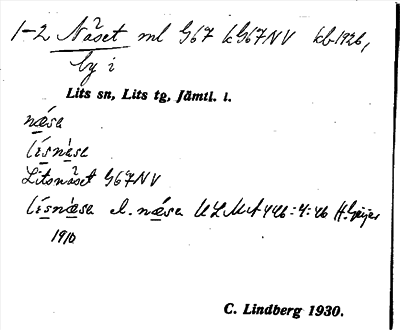 1-2 Näset ml G67 kG67NV kb 1926,
by i
Lits sn, Lits tg, Jämtl. l.
næsa
lísnæsa
Litsnäset G67NV
lísnæsa el. næsa ULMA 446:4:46 H. Geijer
1910
C. Lindberg 1930.